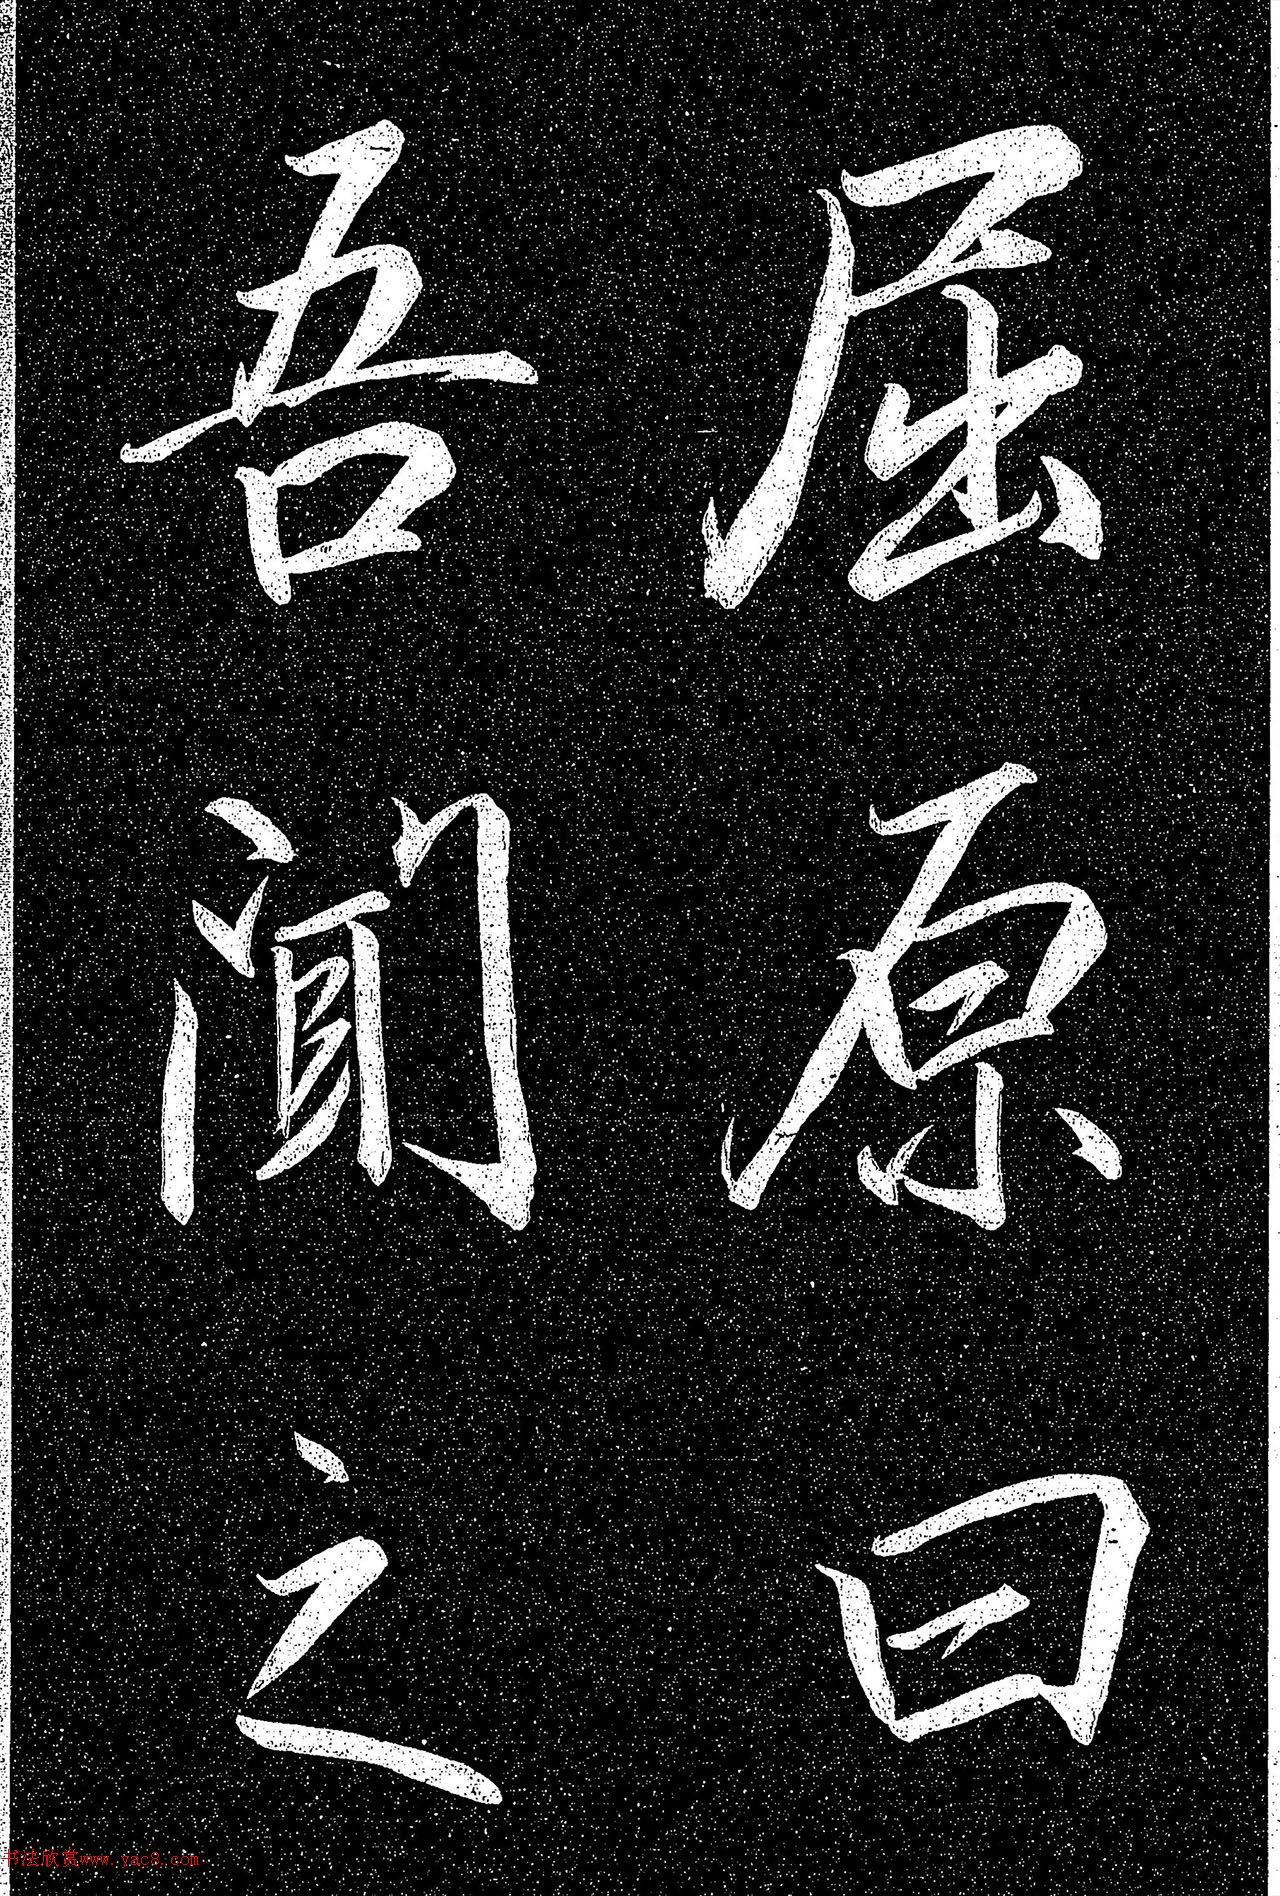 屈原曰
吾聞之
书法欣赏www.yac8.com